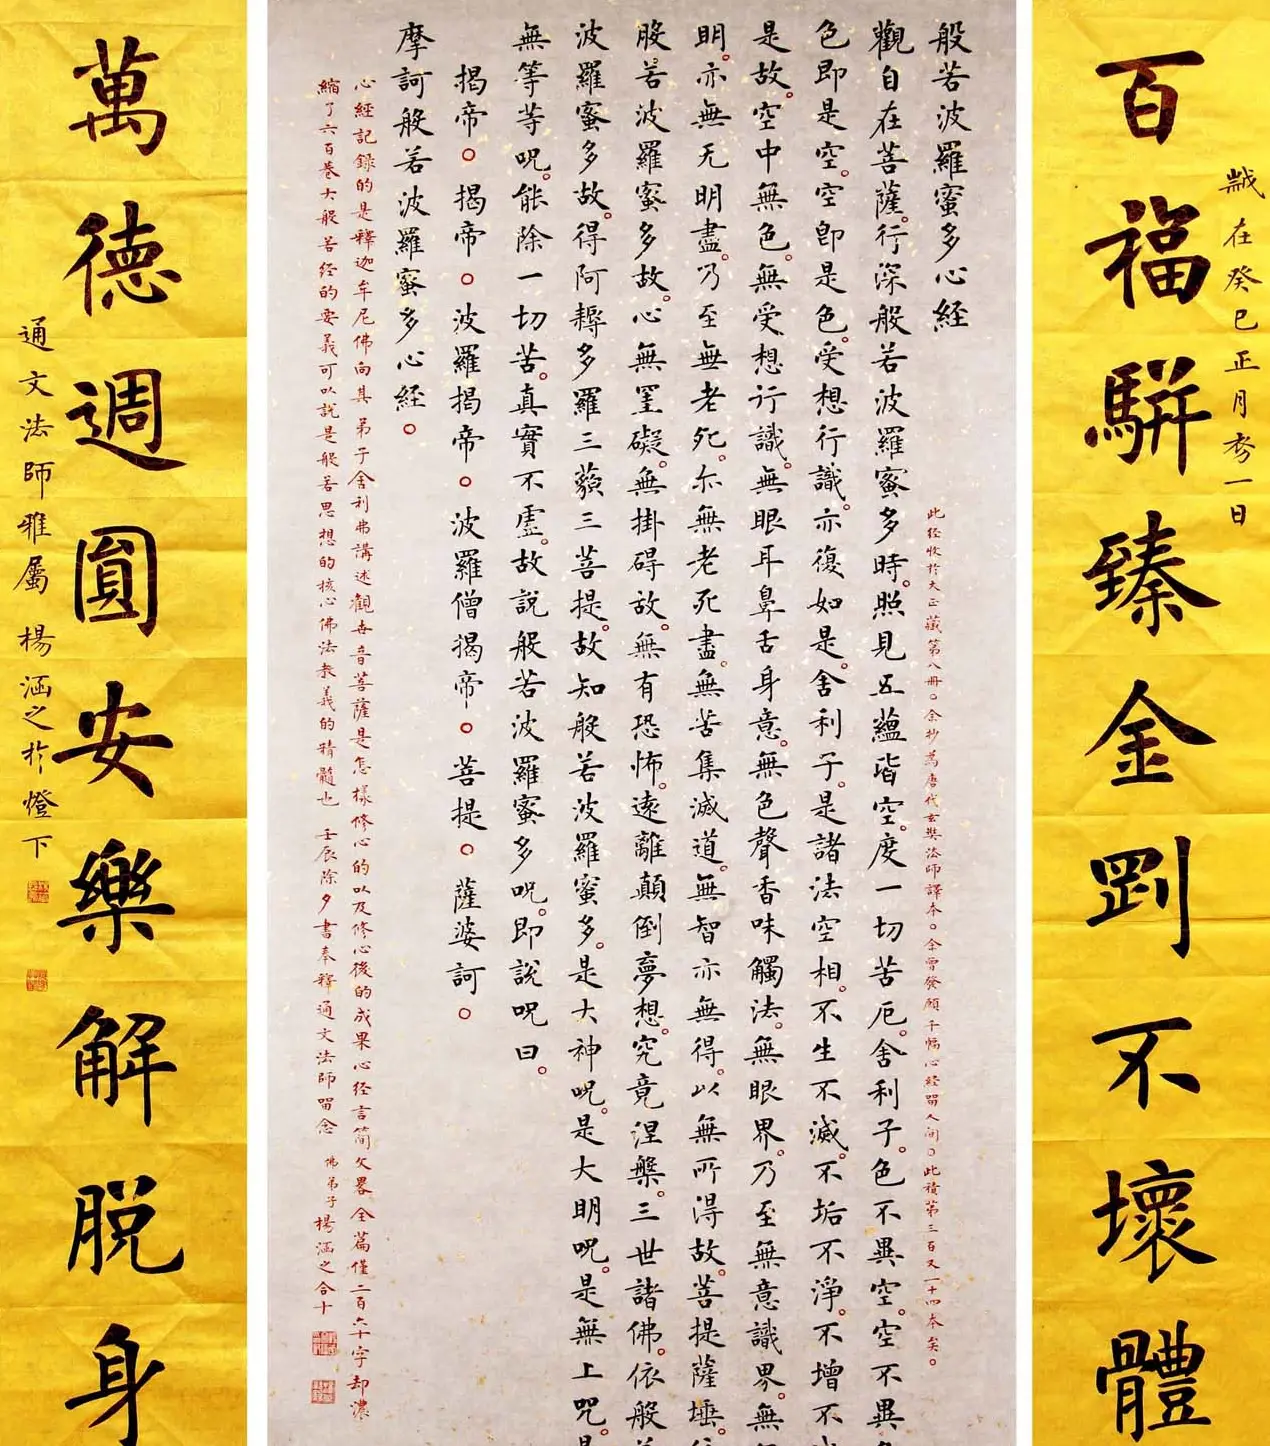 百福駢臻金剛不壞體
歲在癸巳正月初一日
般若波羅蜜多心經
此经收於大正藏第八冊。余抄爲唐代玄奘法师譯本。余曾發願千幅心經留人间。此積第三百又一十四本矣。
觀自在菩薩。行深般若波羅蜜多時。照見五蘊皆空。度一切苦厄。舍利子。色不異空。空不異
色即是空。空即是色。受想行識。亦復如是。舍利子。是諸法空相。不生不滅。不垢不淨。不增不
是故。空中無色。無受想行識。無眼耳鼻舌身意。無色聲香味觸法。無眼界。乃至無意識界。無
明。亦無无明盡。乃至無老死。亦無老死盡。無苦集滅道。無智亦無得。以無所得故。菩提薩埵。
般若波羅蜜多故。心無罣礙。無掛碍故。無有恐怖。遠離顛倒夢想。究竟涅槃。三世諸佛。依般
波羅蜜多故。得阿耨多羅三藐三菩提。故知般若波羅蜜多。是大神呪。是大明呪。是無上呪。
無等等呪。能除一切苦。真實不虛。故說般若波羅蜜多呪。即說呪曰。
揭帝。揭帝。波羅揭帝。波羅僧揭帝。菩提。薩婆訶。
摩訶般若波羅蜜多心經。
心經記録的是釋迦牟尼佛向其弟子舍利弗講述觀世音菩薩是怎樣修心的以及修心後的成果心经言简文畧全篇僅二百六十字却濃
縮了六百卷大般若经的要義可以説是般若思想的核心佛法教義的精髓也 壬辰除夕書奉釋通文法師留念 佛弟子楊涵之合十
萬德週圓安樂解脫身
通文法師雅屬 楊涵之於燈下